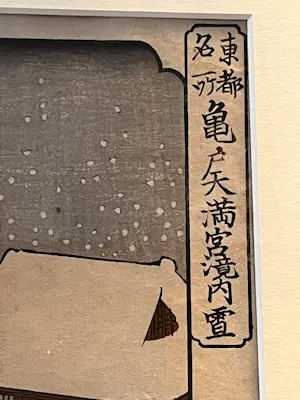 東都
名所
亀戸天満宮境内雪